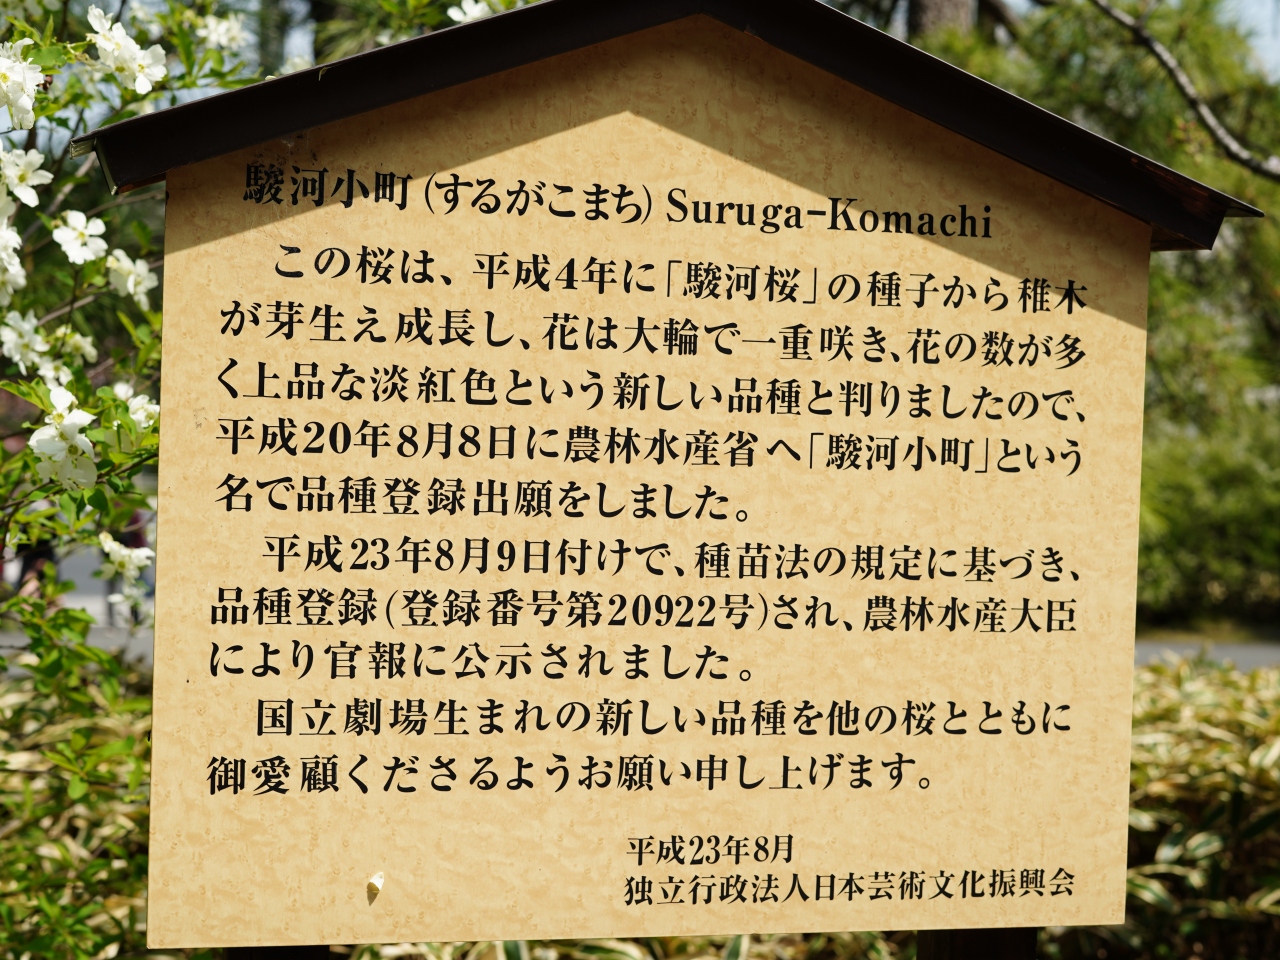 駿河小町(するがこまち)Suruga-Komachi
この桜は、平成4年に「駿河桜」の種子から稚木
が芽生え成長し、花は大輪で一重咲き、花の数が多
く上品な淡紅色という新しい品種と判りましたので、
平成20年8月8日に農林水産省へ「駿河小町」という
名で品種登録出願をしました。
平成23年8月9日付けで、種苗法の規定に基づき、
品種登録(登録番号第20922号)され、農林水産大臣
により官報に公示されました。
国立劇場生まれの新しい品種を他の桜とともに
御愛顧くださるようお願い申し上げます。
平成23年8月
独立行政法人日本芸術文化振興会